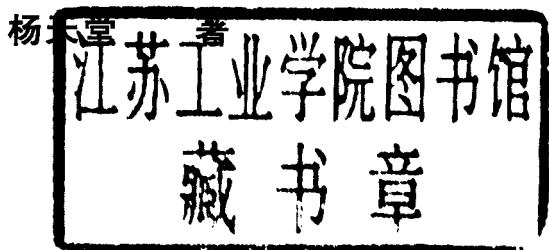 杨天堂 著
江苏工业学院图书馆
藏书章